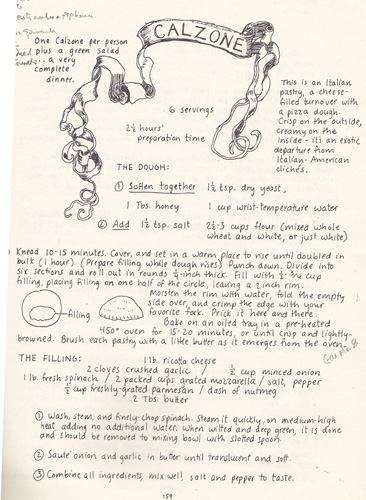 CALZONE
One Calzone per person
plus a green salad
... a very
complete
dinner.
This is an Italian
pastry, a cheese-
filled turnover with
a pizza dough.
Crisp on the outside,
creamy on the
inside - it's an exotic
departure from
Italian-American
clichés.
6 servings
2½ hours'
preparation time
THE DOUGH:
① Soften together 1½ tsp. dry yeast,
1 Tbs. honey 1 cup wrist-temperature water
② Add 1½ tsp. salt 2½-3 cups flour (mixed whole
wheat and white, or just white)
Knead 10-15 minutes. Cover, and set in a warm place to rise until doubled in
bulk (1 hour). (Prepare filling while dough rises) Punch down. Divide into
six sections and roll out in rounds ¼-inch thick. Fill with ½-¾ cup
filling, placing filling on one half of the circle, leaving a ½ inch rim.
Moisten the rim with water, fold the empty
side over, and crimp the edge with your
favorite fork. Prick it here and there.
filling
Bake on an oiled tray in a pre-heated
450° oven for 15-20 minutes, or until crisp and lightly-
browned. Brush each pastry with a little butter as it emerges from the oven.
Gas Mk 8
THE FILLING: 1 lb. ricotta cheese
2 cloves crushed garlic / ½ cup minced onion
1 lb. fresh spinach / 2 packed cups grated mozzarella / salt, pepper
½ cup freshly-grated parmesan / dash of nutmeg
2 Tbs. butter
① Wash, stem, and finely-chop spinach. Steam it quickly, on medium-high
heat, adding no additional water. When wilted and deep green, it is done
and should be removed to mixing bowl with slotted spoon.
② Sauté onion and garlic in butter until translucent and soft.
③ Combine all ingredients, mix well, salt and pepper to taste.
159